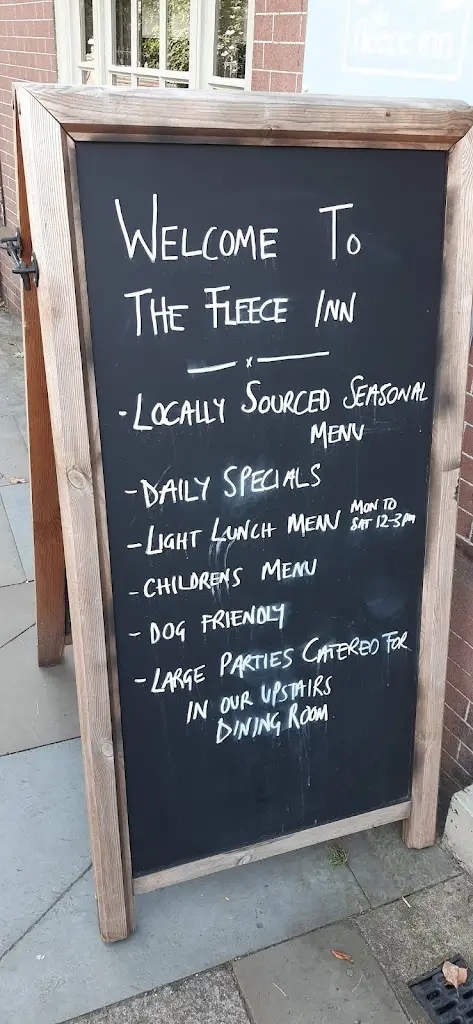 WELCOME TO
THE FLEECE INN
- LOCALLY SOURCED SEASONAL
MENU
- DAILY SPECIALS
- LIGHT LUNCH MENU MON TO
SAT 12-3PM
- CHILDRENS MENU
- DOG FRIENDLY
- LARGE PARTIES CATERED FOR
IN OUR UPSTAIRS
DINING ROOM